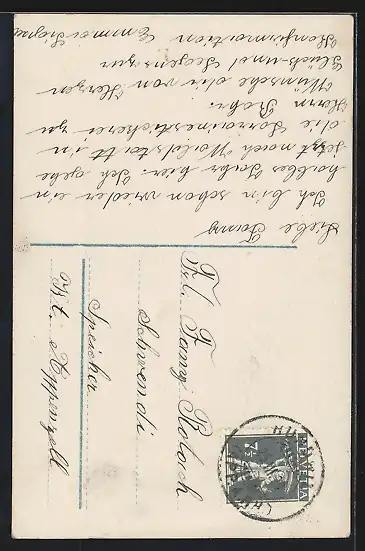 Liebe Fanny
Ich bin schon wieder ein
halbes Jahr hier. Ich gehe
jetzt nach Waldstatt in
die Lorrainestickerei zu
Herrn Rohr.
Wünsche dir von Herzen
Glück und Segen zur
Konfirmation Emma
Frl. Fanny Rotach
Schwendi
Speicher
Kt. Appenzell
HELVETIA
7½